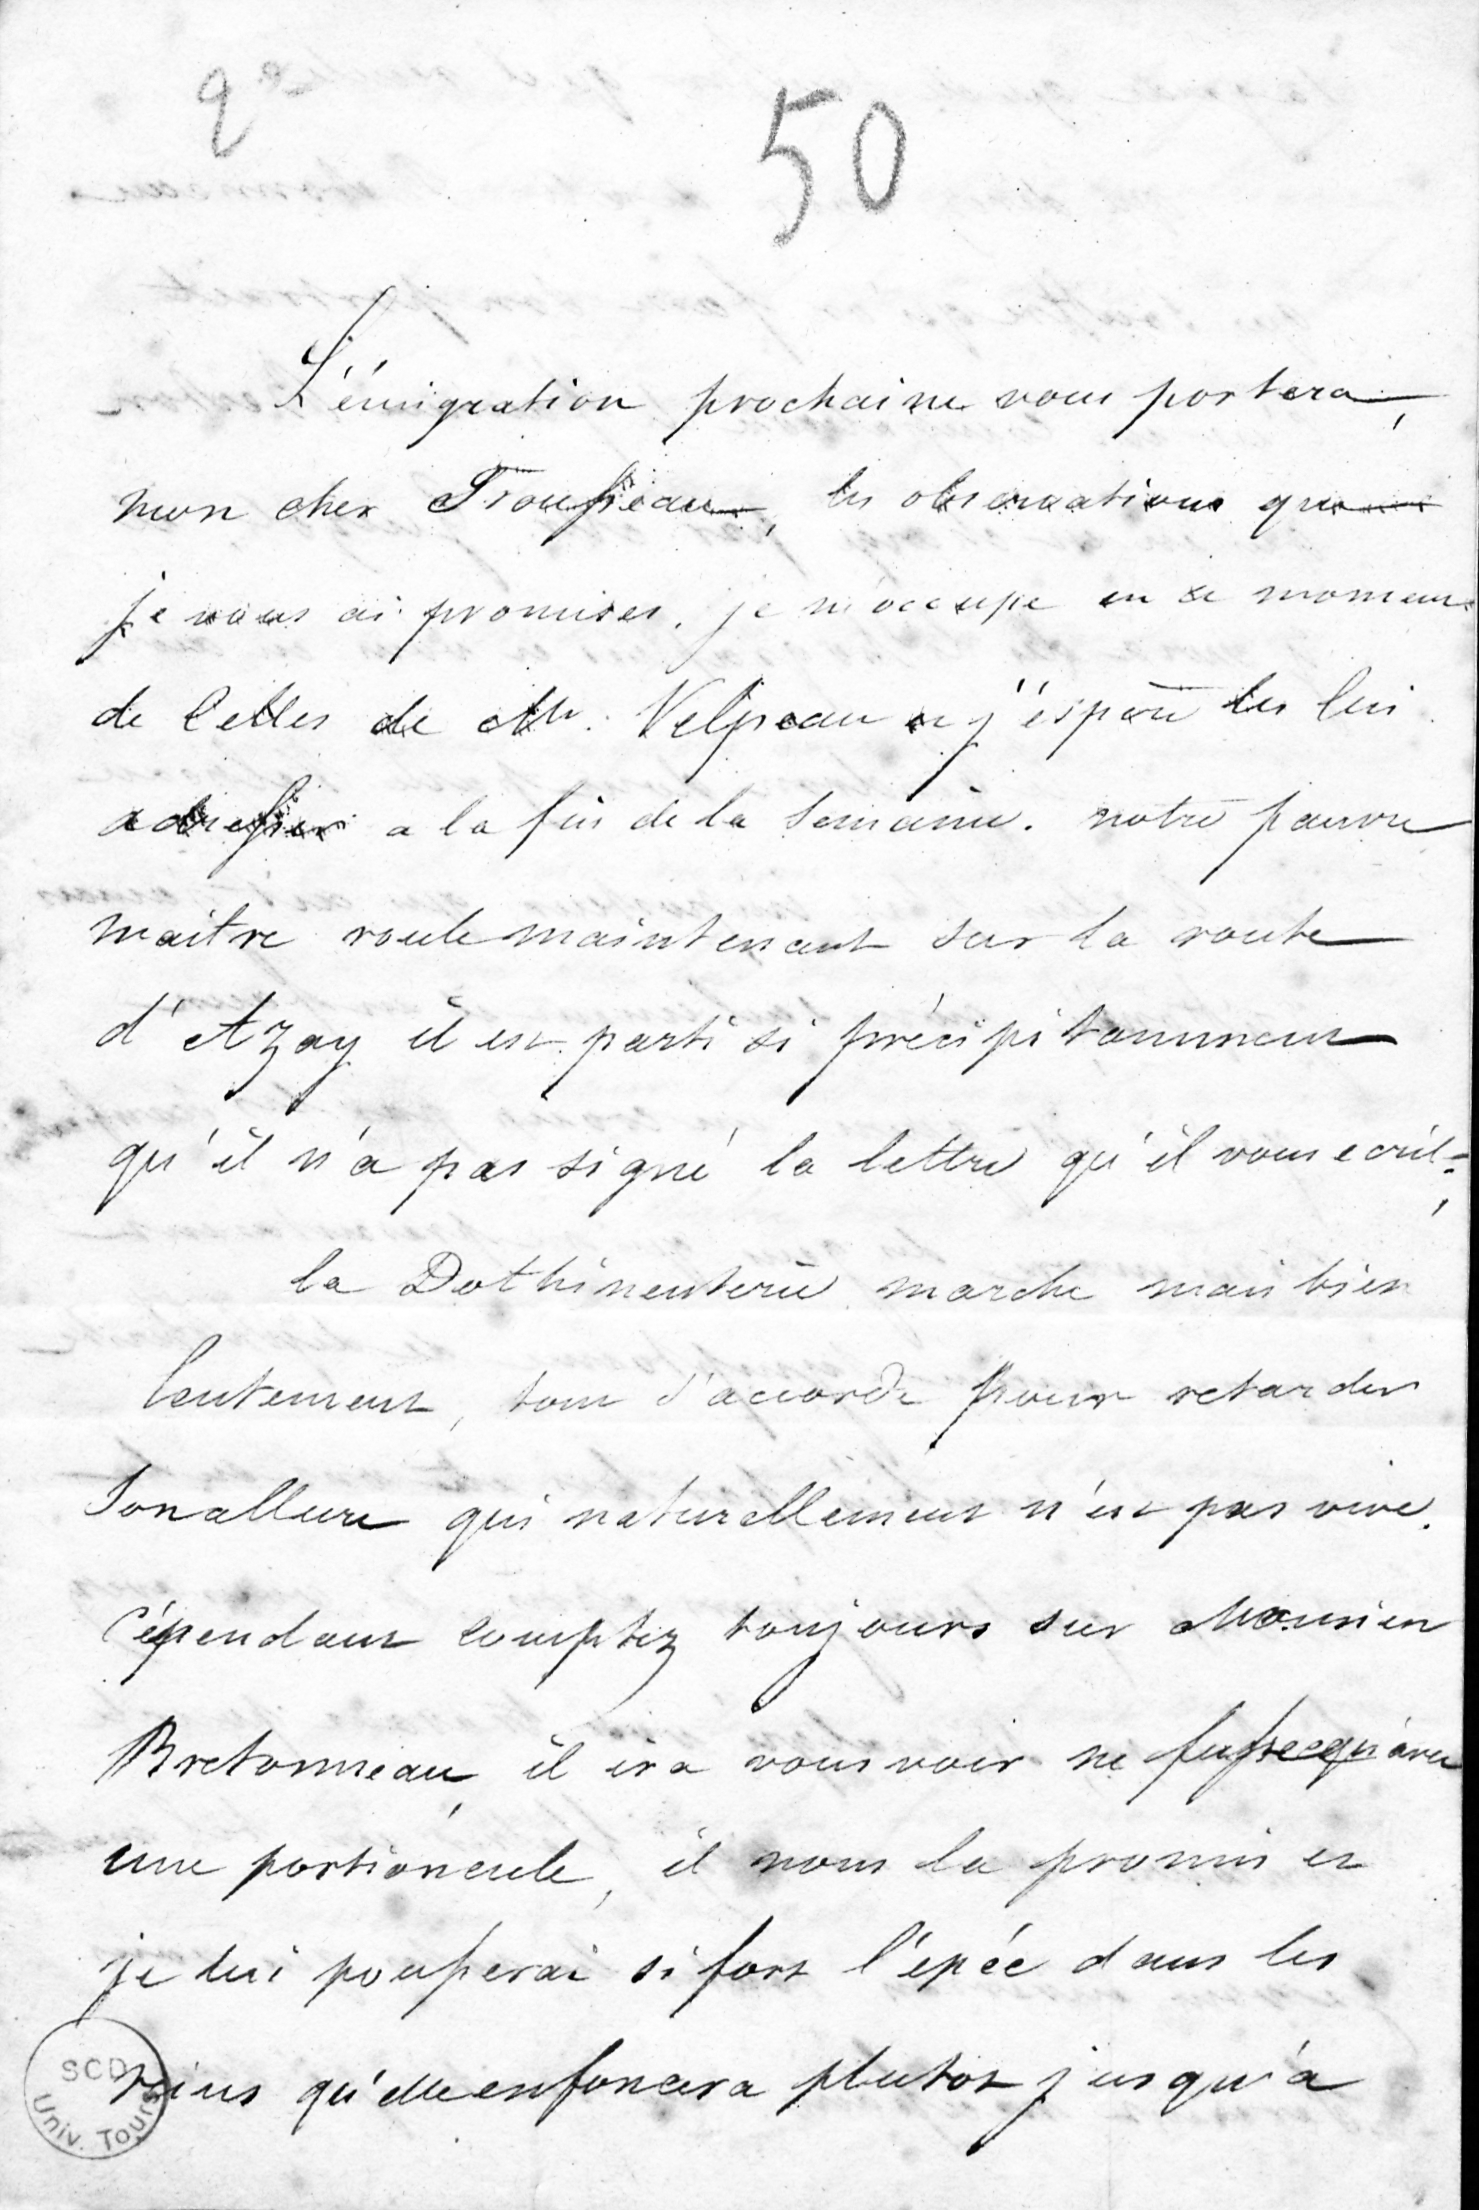 50
L'émigration prochaine vous portera,
mon cher Trousseau, les observations que
je vous ai promises. je m'occupe en ce moment
de Celles de Mr. Velpeau et j'éspère les lui
adresser a la fin de la Semaine. notre pauvre
maitre roule maintenant sur la route
d'Azay il est parti si précipitamment
qu'il n'a pas signé la lettre qu'il vous ecrit,
la Dothinenterie marche mais bien
lentement, tout s'accorde pour retarder
Son allure qui naturellement n'est pas vive.
Cépendant comptez toujours sur Monsieur
Bretonneau, il ira vous voir ne fusse qu'avec
une portioncule, il nous la promis et
je lui pousserai si fort l'épée dans les
reins qu'elle enfoncera plutot jusqu'a
SCD
Univ. Tours